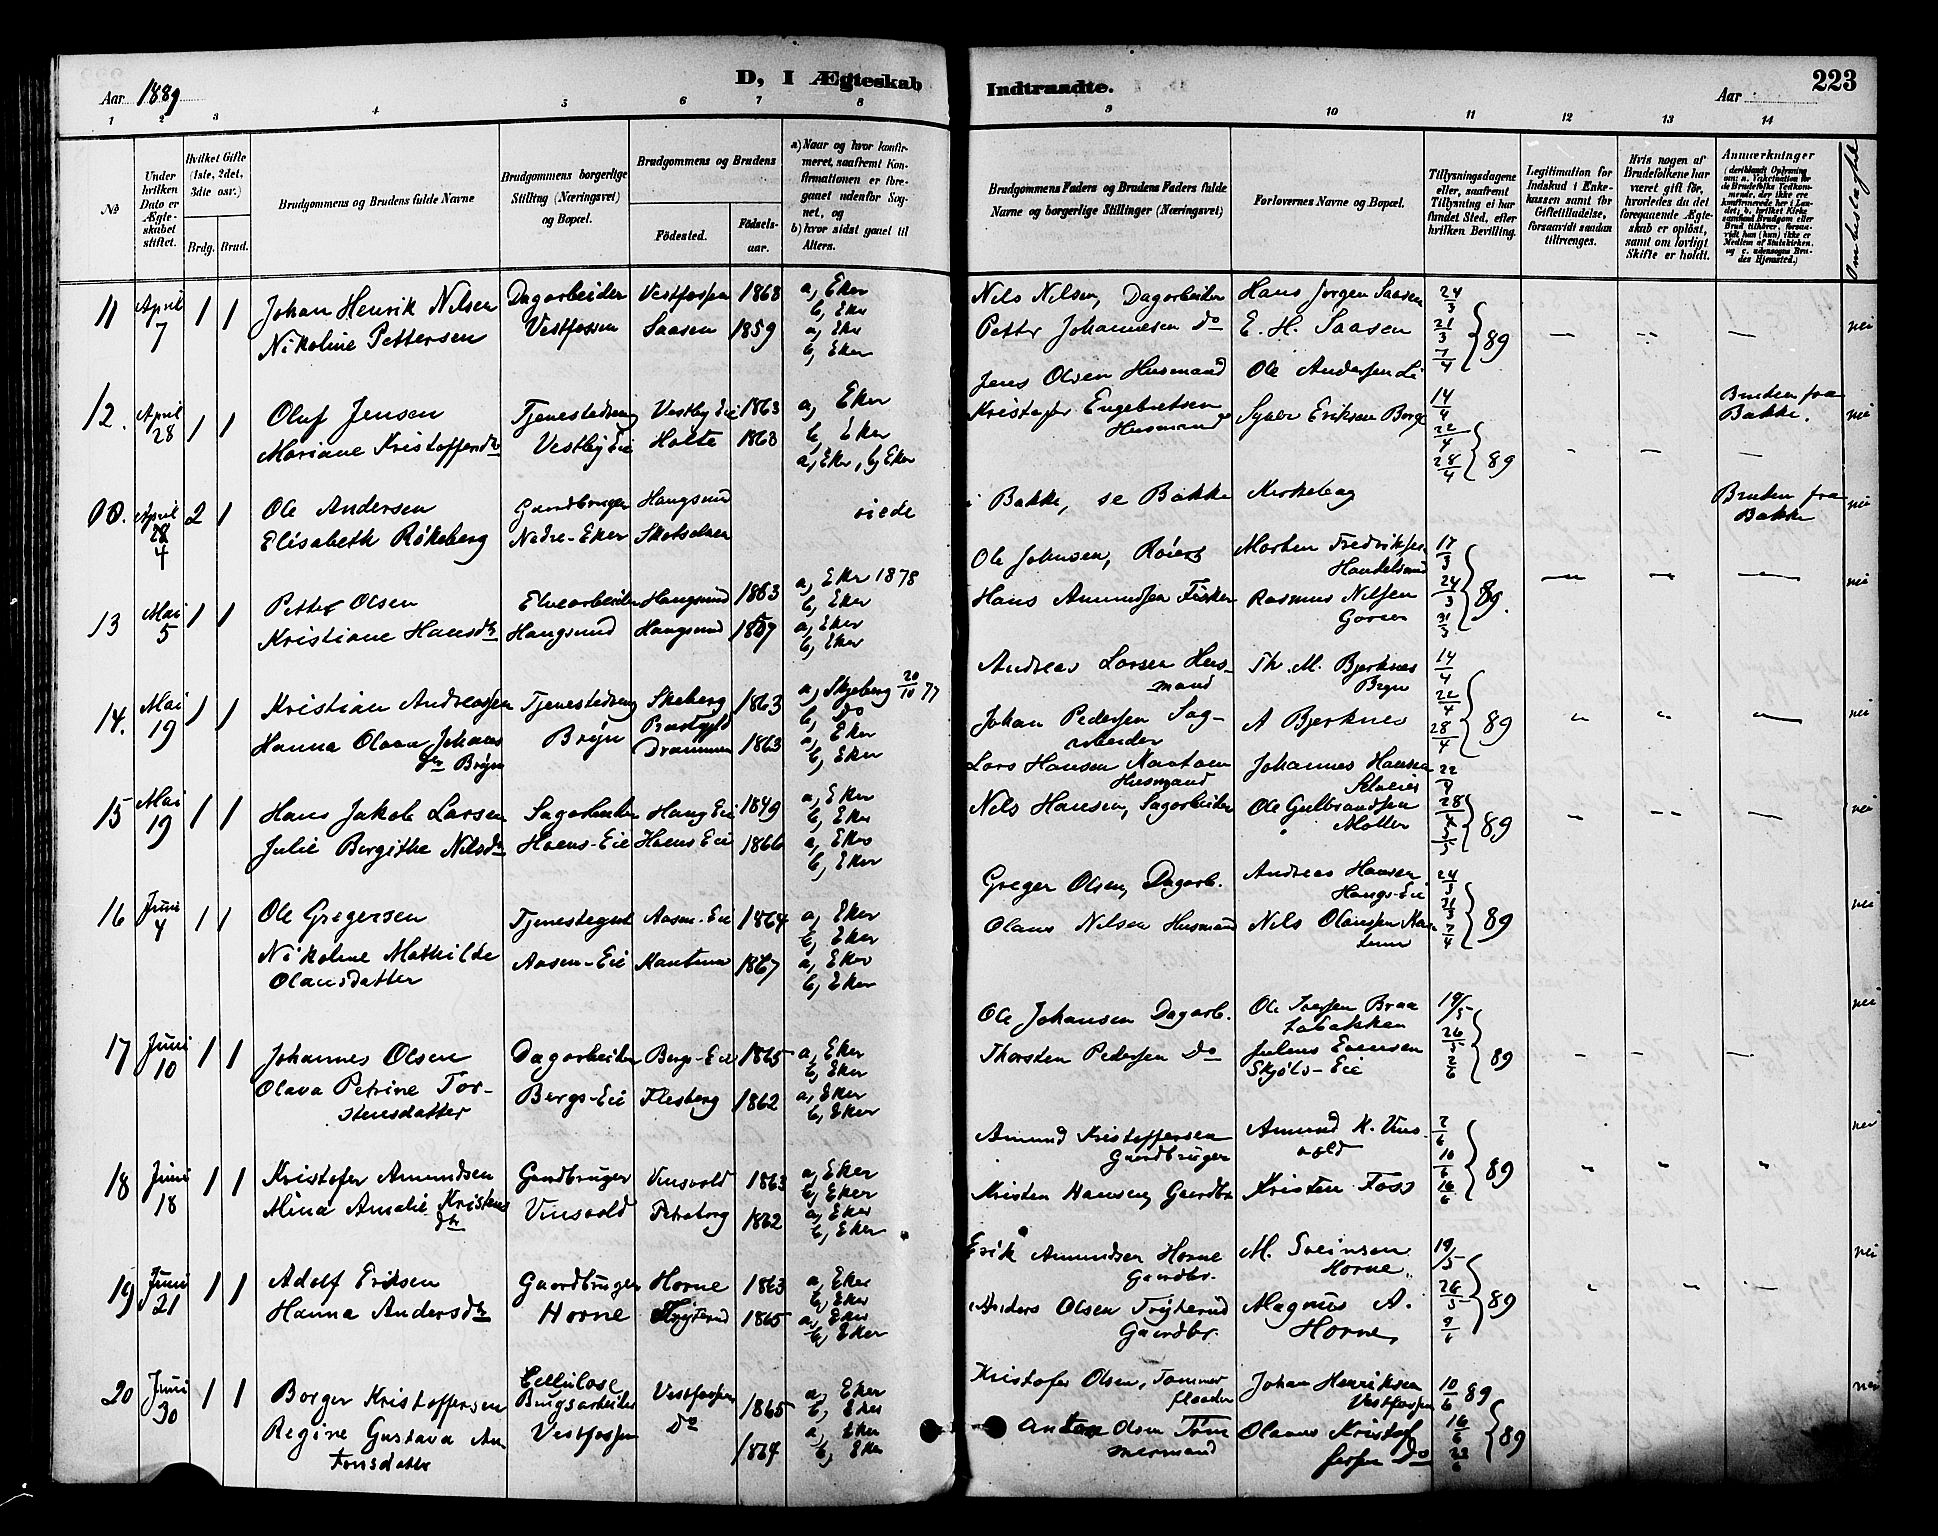 Aar 1889
D, I Ægteskab
Indtraadte.
Aar
223
1 2 3 4 5 6 7 8 9 10 11 12 13 14
№
Under hvilken Dato er Ægteskabet stiftet.
Hvilket Gifte (1ste, 2det, 3die osv.)
Brdg. Brud.
Brudgommens og Brudens fulde Navne
Brudgommens borgerlige Stilling (Næringsvei) og Bopæl.
Brudgommens og Brudens
Fødested.
Fødselsaar.
a) Naar og hvor konfirmeret, saafremt Konfirmationen er foregaaet udenfor Sognet, og
b) hvor sidst gaaet til Alters.
Brudgommens Faders og Brudens Faders fulde Navne og borgerlige Stillinger (Næringsvei)
Forlovernes Navne og Bopæl.
Tillysningsdagene eller, saafremt Tillysning ei har fundet Sted, efter hvilken Bevilling.
Legitimation for Indskud i Enkekassen samt for Giftetilladelse, forsaavidt saadan tiltrænges.
Hvis nogen af Brudefolkene har været gift før, hvorledes da det foregaaende Ægteskab er opløst, samt om lovligt Skifte er holdt.
Anmærkninger
11 April 7 1 1 Johan Henrik Nilsen Dagarbeider Vestfossen 1868 a, Eker b, Eker
Nikoline Pettersen Vestfossen Saasen 1859 a, Eker b, Eker
Nils Nilsen, Dagarbeider Hans Jørgen Saasen 24/3
Petter Johannesen Do E. H. Saasen 31/3 7/4 89 nei
12. April 28 1 1 Oluf Jensen Tjenestedreng Vestby Eie 1863 a, Eker b, Eker
Mariane Kristoffersdtr Vestby Eie Holte 1863 a, Eker, b, Eker
Jens Olsen Husmand Ole Andersen Li 14/4
Kristofer Engebretsen Husmand Syver Eriksen Berg 22/4 28/4 89 Bruden fra Bakke. nei
00. April 28 4 2 1 Ole Andersen Gaardbruger Hougsund
Elisabeth Røkeberg Nedre-Eker Skotselven viede
i Bakke, se Bakke Kirkebog Bruden fra Bakke nei
13 Mai 5 1 1 Petter Olsen Elvearbeider Hougsund 1863 a, Eker 1878 b, Eker
Kristiane Hansdtr Hougsund Hougsund 1867 a, Eker b, Eker
Ole Johnsen, Morten Fredriksen Handelsmand 17/3
Hans Amundsen Fisker Rasmus Nilsen 24/3 31/3 89. nei
14. Mai 19 1 1 Kristian Andreassen Tjenestedreng Skeberg 1863 a, Skjeberg 20/10 77 b, Do
Hanna Olava Johansdtr Bryn Bryn Drammen 1863 a, Eker b, Eker
Andreas Larsen Husmand Th. M. Bjerknes Bryn 14/4
Johan Pedersen Sagarbeider A Bjerknes 22/4 28/4 89 nei
15 Mai 19 1 1 Hans Jakob Larsen Sagarbeider Houg Eie 1849 a, Eker b, Eker
Julie Bergithe Nilsdtr Hoens-Eie Hoens Eie 1866 a, Eker b, Eker
Lars Hansen Husmand Johannes Hansen 22
Nils Hansen, Sagarbeider Ole Gulbrandsen Møller 28/4 5/5 89 nei
16 Juni 4 1 1 Ole Gregersen Tjenestegut Aasen-Eie 1864 a, Eker b, Eker
Nikoline Mathilde Olausdatter Aasen-Eie 1867 a, Eker b, Eker
Greger Olsen, Dagarb. Andreas Hansen Hougs-Eie 24/3
Olaus Nilsen Husmand Nils Olaussen 31/3 7/4 89 nei
17 Juni 10 1 1 Johannes Olsen Dagarbeider Bergs-Eie 1865 a, Eker b, Eker
Olava Petrine Torstensdatter Bergs-Eie Flesberg 1862 a, Eker b, Eker
Ole Johansen Dagarb. Ole Iversen 19/5
Thorsten Pedersen Do Julius Evensen Skjøls-Eie 26/5 2/6 89 nei
18 Juni 18 1 1 Kristofer Amundsen Gaardbruger Vinsvold 1863 a, Eker b, Eker
Mina Amalie Kristensdtr Vinsvold 1862 a, Eker b, Eker
Amund Kristoffersen Gaardbruger Amund K. Vinsvold 2/6
Kristen Hansen, Gaardbr Kristen Foss 10/6 16/6 89 nei
19 Juni 21 1 1 Adolf Eriksen Gaardbruger Horne 1863 a, Eker b, Eker
Hanna Andersdtr Horne Tryterud 1865 a, Eker b, Eker
Erik Amundsen Horne Gaardbr. M. Sveinsen Horne 19/5
Anders Olsen Tryterud Gaardbr. Magnus A. Horne 26/5 9/6 89 nei
20 Juni 30 1 1 Borger Kristoffersen Cellulose Brugsarbeider Vestfossen 1865 a, Eker b, Eker
Regine Gustava Antonsdatter Vestfossen Do 1864 a, Eker b, Eker
Kristofer Olsen, Tømmerfløder Johan Henriksen Vestfossen 10/6 89
Anton Olsen Tømmermand Olaus Kristofersen Do 16/6 23/6 89 nei